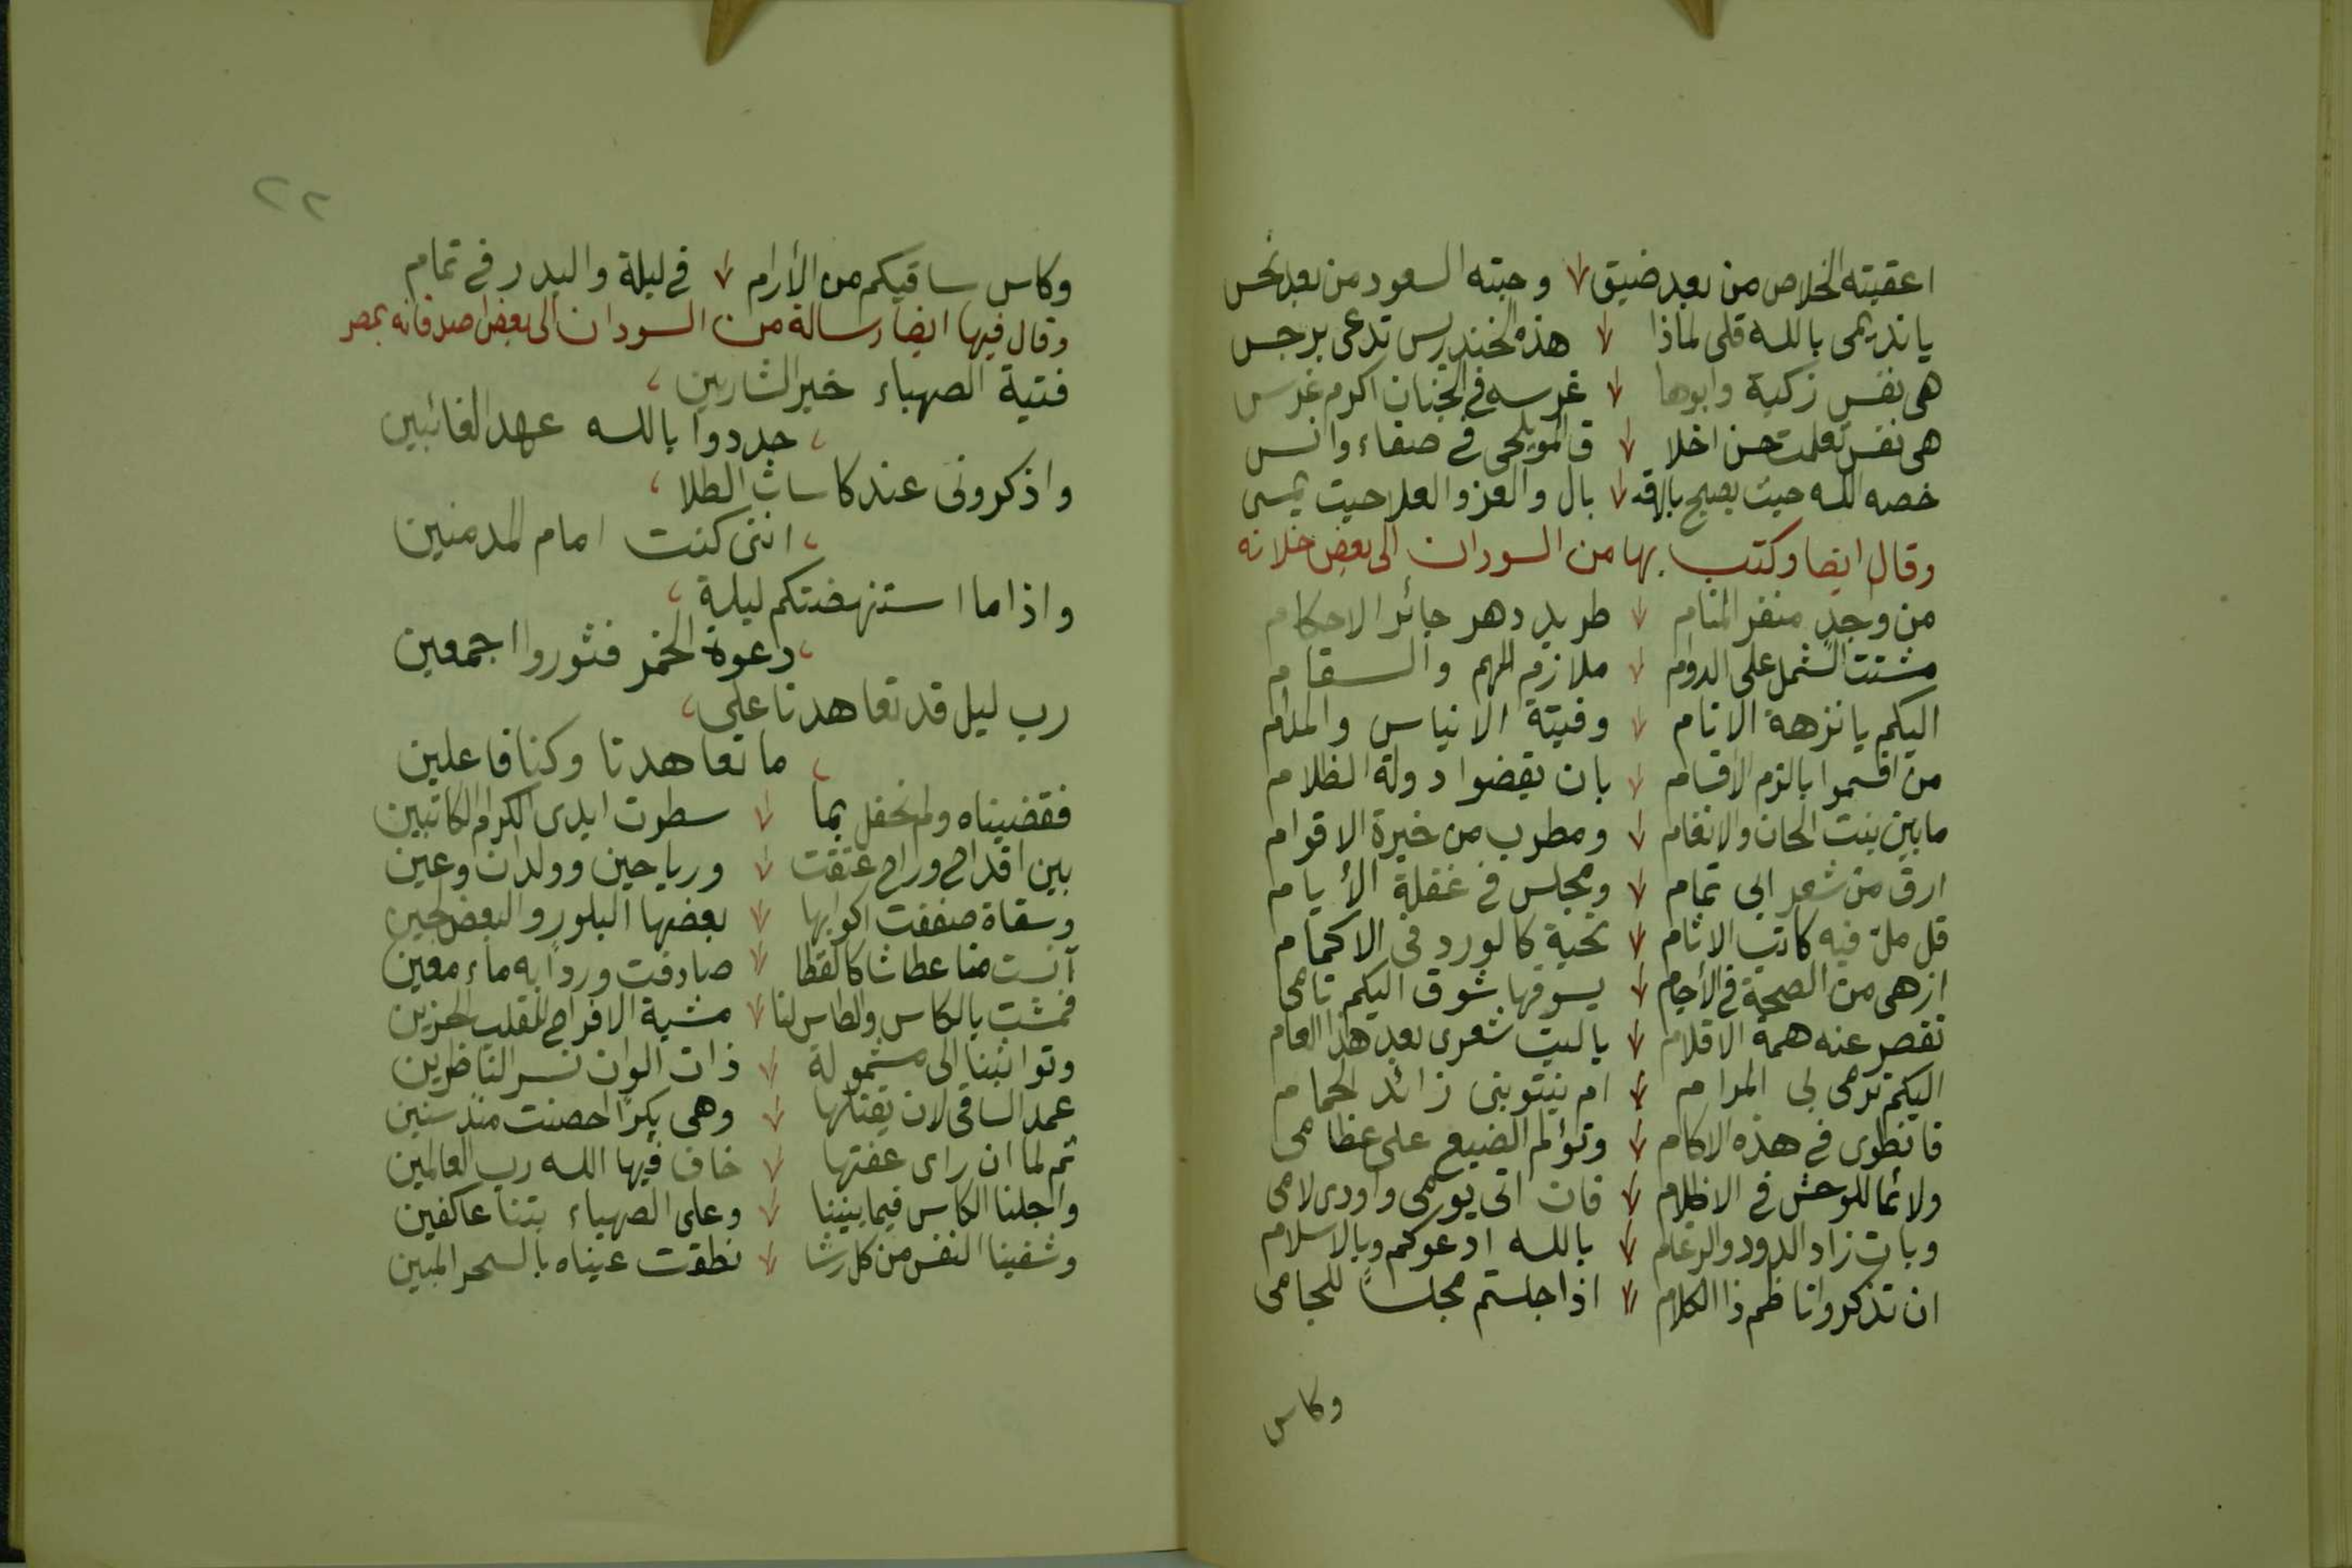 اعقبته الخلاص من بعد ضيق وحبته السعود من بعد نحس
يا نديمى بالله قلى لماذا هذه الخندريس تدعى برجس
هى نفس زكية وابوها غرسه فى الجنان اكرم غرس
هى نفس تعلمت حسن اخلا ق المويلحى فى صفاء وانس
خصه الله حيث يصبح بالاقـ بال والعز والعلا حيث يمسى
وقال ايضا وكتب بها من السودان الى بعض خلانه
من واجد منفر المنام طريد دهر جائر الاحكام
مشتت الشمل على الدوام ملازم للهم والسقام
اليكم يا نزهة الانام وفتية الايناس والمدام
من اقسموا بالزم الاقسام بان يقضوا دولة الظلام
ما بين بنت الحان والانغام ومطرب من خيرة الاقوام
ارق من شعر ابى تمام ومجلس فى غفلة الأيام
قل مل فيه كاتب الاثام تحية كالورد فى الاكمام
ازهى من الصحة فى الأجسام يسوقها شوق اليكم نامى
تقصر عنه همة الاقلام يا ليت شعرى بعد هذا العام
اليكم ترمى بى المرامى ام ينتوينى زائد الحمام
فانطوى فى هذه الاكام وتولم الضبع على عظامى
ولائما للوحش فى الاظلام فان اتى يومى واودى لامى
وبات زاد الدود والرغام بالله ادعوكم وبالاسلام
ان تذكروا ناظم ذا الكلام اذا جلستم مجلساً للجامى
وكاس
٢٢
وكاس ساقيكم من الأرام فى ليلة والبدر فى تمام
وقال فيها ايضا رسالة من السودان الى بعض اصدقائه بمصر
فتية الصهباء خير الشاربين
جددوا بالله عهد الغائبين
واذكرونى عند كاسات الطلا
اننى كنت امام المدمنين
واذا ما استنهضتكم ليلة
دعوة الخمر فثوروا اجمعين
رب ليل قد تعاهدنا على
ما تعاهدنا وكنا فاعلين
فقضيناه ولم نحفل بما سطرت ايدى الكرام الكاتبين
بين اقداح وراح عتقت ورياحين وولدان وعين
وسقاة صففت اكوابها بعضها البلور والبعض لجين
آنست منا عطاشا كالقطا صادفت ورداً به ماء معين
فمشت بالكاس والطاس لنا مشية الافراح للقلب الحزين
وتواثبنا الى مشمولة ذات الوان تسر الناظرين
عمد الساقى لان يقتلها وهى بكراً حصنت منذ سنين
ثم لما ان راى عفتها خاف فيها الله رب العالمين
واجلنا الكاس فيما بيننا وعلى الصهباء بتنا عاكفين
وشفينا النفس من كل رشا نطقت عيناه بالسحر المبين